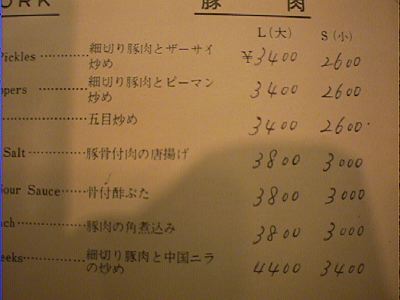 ORK 豚肉
L(大) S(小)
Pickles 細切り豚肉とザーサイ ¥3400 2600
炒め
ppers 細切り豚肉とピーマン 3400 2600
炒め
五目炒め 3400 2600
Salt 豚骨付肉の唐揚げ 3800 3000
Sour Sauce 骨付酢ぶた 3800 3000
ach 豚肉の角煮込み 3800 3000
eeks 細切り豚肉と中国ニラ 4400 3400
の炒め